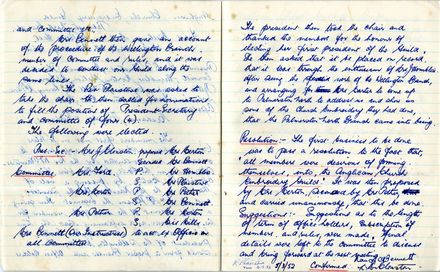 and Committee etc.
Mrs Bennett then gave an account
of the procedure of the Wellington Branch,
number of Committee and rules, and it was
decided to conduct our Guild along the
same lines.
The Rev. was asked to
take the chair. He then called for nominations
to fill the positions of President, Secretary
and committee of four (4).
The following were elected.
Pres. proposed Mrs Berton
Seconded Mrs Bennett
Committee Mrs Ford P.
S.
Mrs P. Mrs Peters
S. Mrs Bennett
Mrs Peters P. Mrs
S. Miss Mills
Mrs Bennett (as Instructress) is ex Officio on
all Committees.
The president then took the chair and
thanked the members for the honour of
electing her first president of the Guild.
She then asked that it be placed on record,
that it was through the enthusiasm of Mrs
after seeing the work of the Wellington Branch,
and arranging for Mrs to come up
to Palmerston North to address us and show us
some of the Church Embroidery they had done,
that the Palmerston North Branch came into being
Resolution:- The first business to be done
was to pass a resolution to the fact that,
"all members were desirous of forming
themselves, into, the Anglican, Church
Embroidery Guild." It was then proposed
by Mrs Berton, seconded by Mrs Peters
and carried unanimously, that this be done
Suggestions:- Suggestions as to the length
of term of office holders, subscription of
members, and rules, were made, final
details were left to the committee to discuss
and bring forward at the next meeting.
Bennett
Confirmed